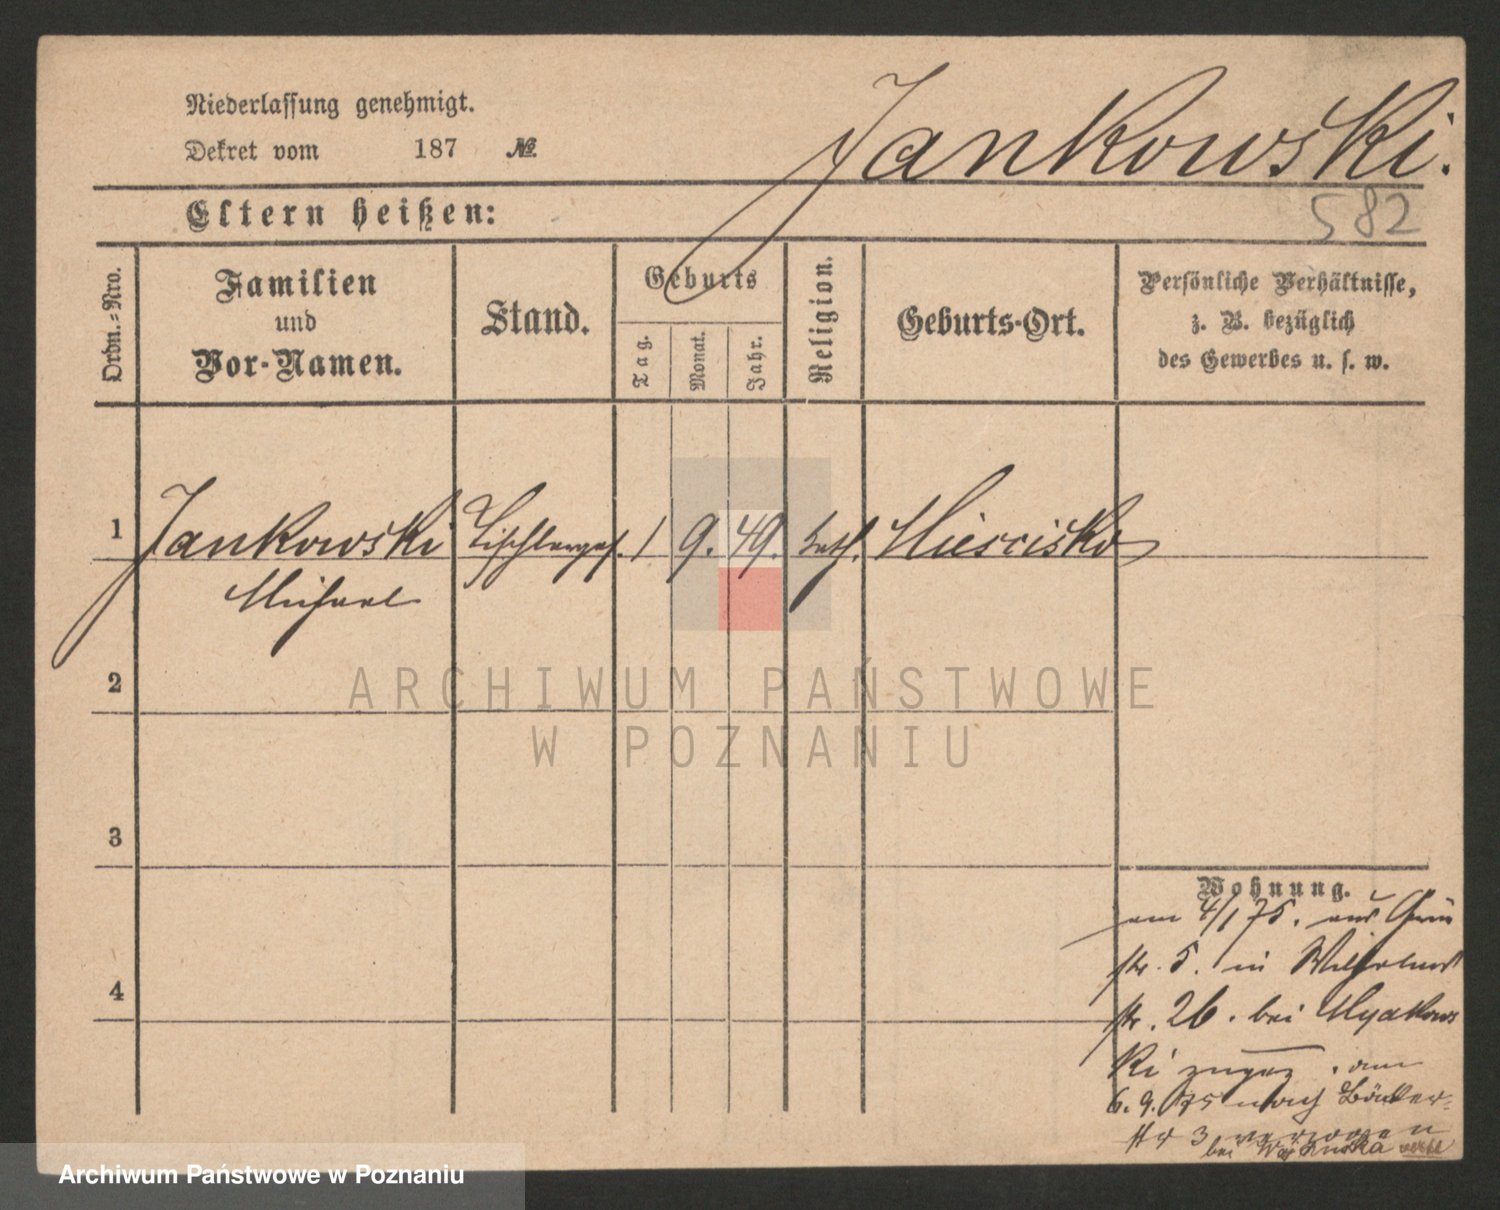 Niederlassung genehmigt.
Dekret vom 187 №.
Jankowski.
Eltern heißen:
582
Ordn.-Nro.
Familien
und
Vor-Namen.
Stand.
Geburts
Tag.
Monat.
Jahr.
Religion.
Geburts-Ort.
Persönliche Verhältnisse,
z. B. bezüglich
des Gewerbes u. s. w.
1 Jankowski Tischlerges. 1 9. 49. kath. Miescisko
Michael
2
ARCHIWUM PAŃSTWOWE
W POZNANIU
3
Wohnung.
am 4/1 75. aus Grün
str. 5. in Wilhelmst
str. 26. bei
ki zugez. am
6. 9. 75 nach Bäcker-
str 3 verzogen
bei
4
Archiwum Państwowe w Poznaniu